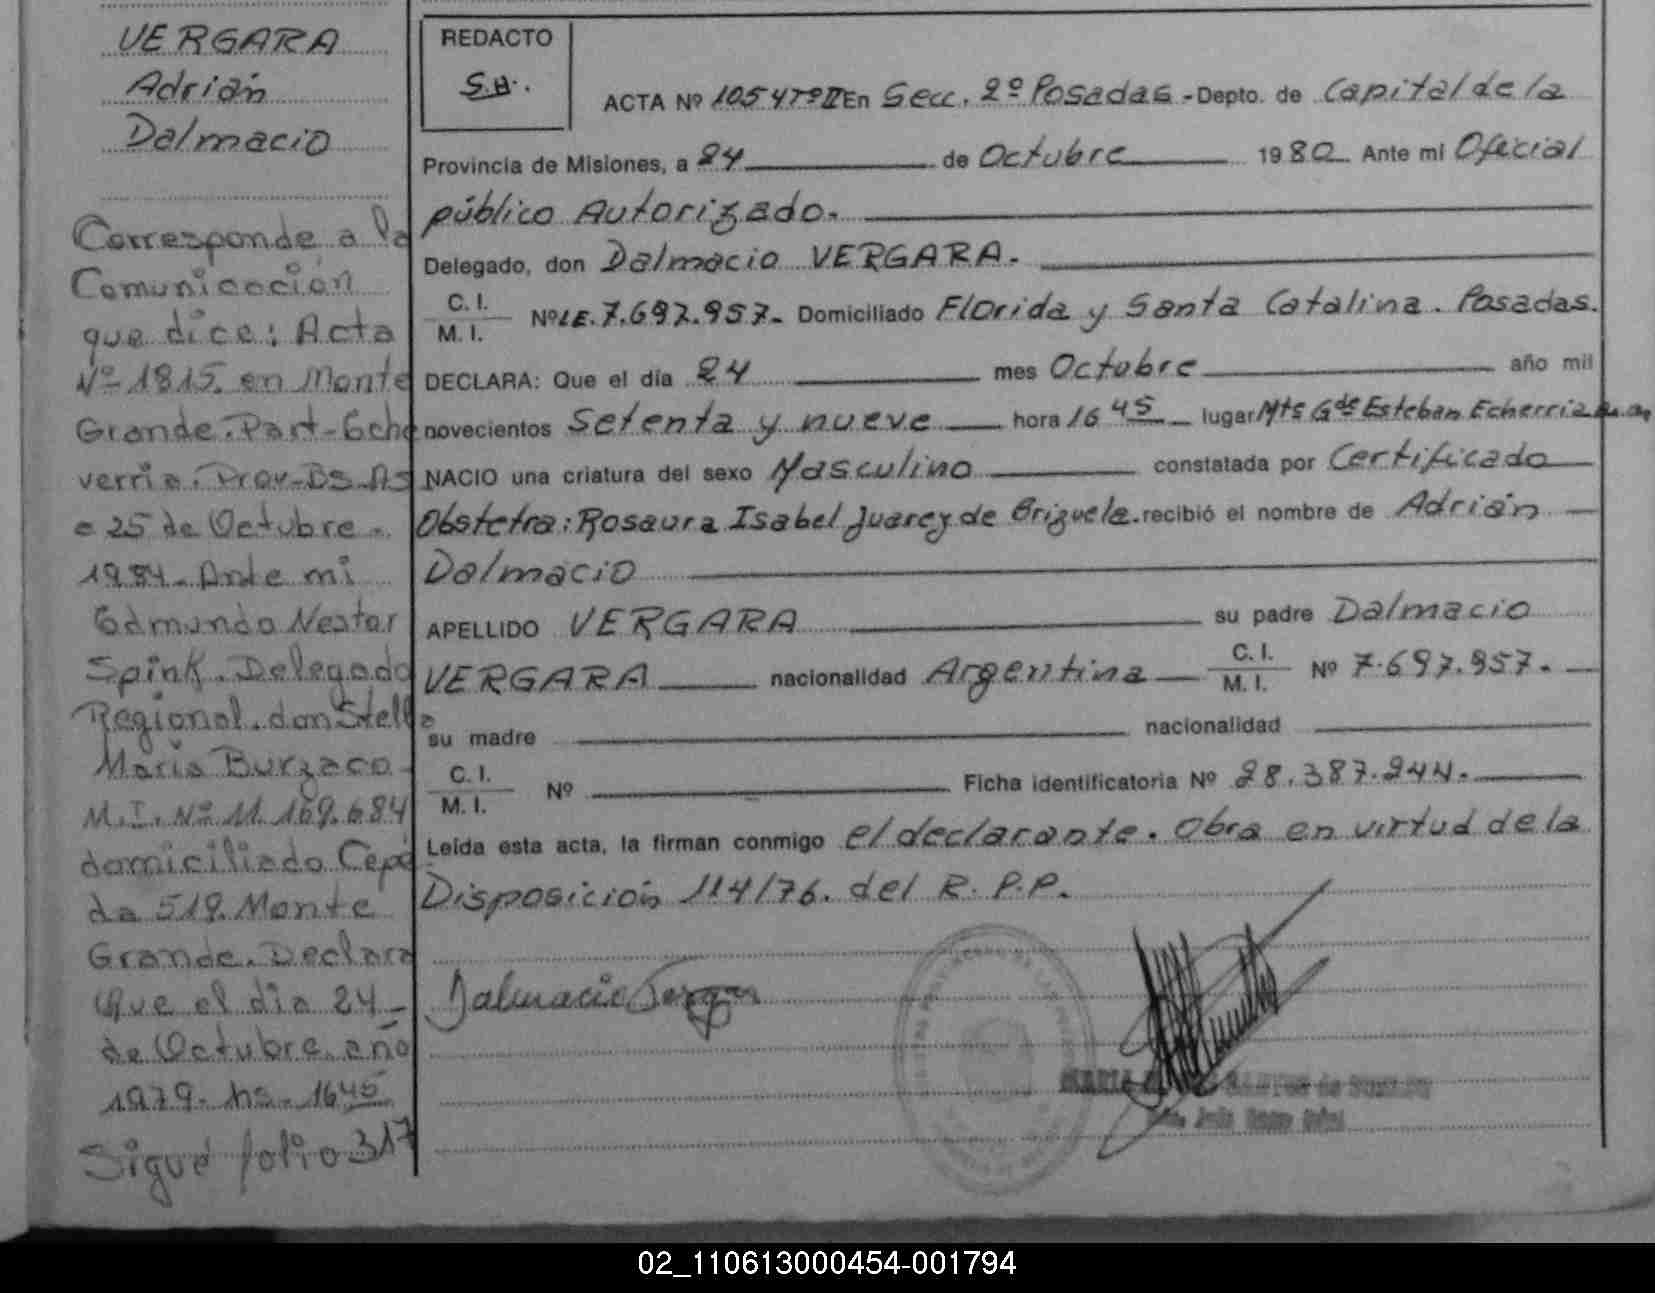 VERGARA
Adrián
Dalmacio
Corresponde a la
Comunicación
que dice: Acta
Nº 1815. en Monte
Grande. Part-Eche
verria. Prov-Bs. As
a 25 de Octubre -
1984. Ante mi
Edmundo Nestor
Spink. Delegado
Regional. don Stella
Maria Burzaco
M.I. Nº 11.169.684
domiciliado Cepe
da 519. Monte
Grande. Declara
Que el dia 24-
de Octubre año
1979. hs. 1645
Sigue folio 317
REDACTO
S.H.
ACTA Nº 1054 Tº II En Secc. 2º Posadas - Depto. de Capital de la
Provincia de Misiones, a 24 de Octubre 1980 Ante mi Oficial
público Autorizado.
Delegado, don Dalmacio VERGARA.
C. I.
M. I. Nº LE. 7.697.957. Domiciliado Florida y Santa Catalina. Posadas.
DECLARA: Que el día 24 mes Octubre año mil
novecientos Setenta y nueve hora 16 45 lugar Mte Gde Esteban Echerria Bs. As
NACIO una criatura del sexo Masculino constatada por Certificado
Obstetra: Rosaura Isabel Juarez de Brizuela. recibió el nombre de Adrián
Dalmacio
APELLIDO VERGARA su padre Dalmacio
VERGARA nacionalidad Argentina C. I. M. I. Nº 7.697.957.
su madre nacionalidad
C. I.
M. I. Nº Ficha identificatoria Nº 28.387.244.
Leída esta acta, la firman conmigo el declarante. Obra en virtud de la
Disposición 114/76. del R. P.P.
Dalmacio Vergara
02_110613000454-001794